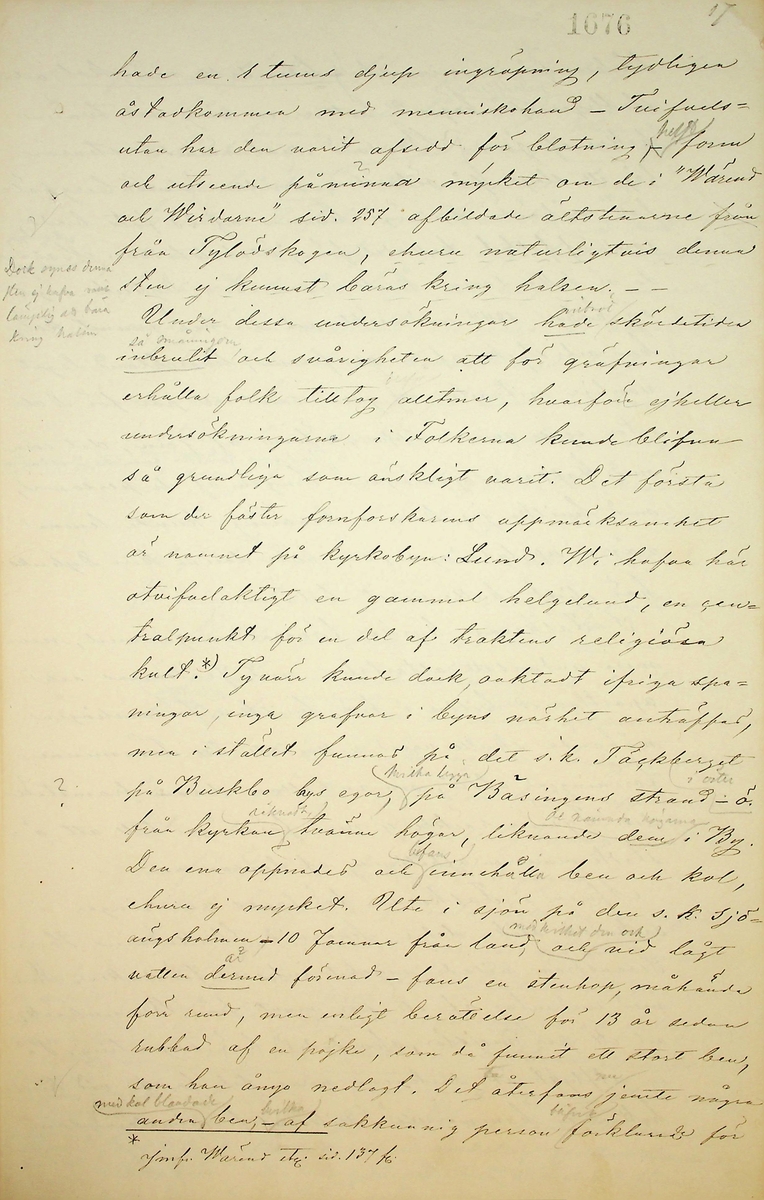 1676
17
hade en 1 tums djup ingröpning, tydligen
åstadkommen med menniskohand – Tvifvels-
utan har den varit afsedd för blotning, – form
och utseende påminna mycket om de i "Wärend
och Wirdarne" sid. 257 afbildade ältstenarne från
från Tylöskogen, churu naturligtvis denna
sten ej kunnat bäras kring halsen. – –
Dock synes denna
sten ej hafva varit
lämplig att bära
kring halsen
Under dessa undersökningar hade skördetiden
så småningom
inbrutit och svårigheten att för gräfningar
erhålla folk tilltog alltmer, hvarföre ejheller
undersökningarne i Folkerna kunde blifva
så grundliga som önskligt varit. Det första
som der fäster fornforskarens uppmärksamhet
är namnet på kyrkobyn: Lund. Wi hafva här
otvifvelaktigt en gammal helgelund, en cen-
tralpunkt för en del af traktens religiösa
kult.*) Tyvärr kunde dock, oaktadt ifriga spa-
ningar, inga grafvar i byns närhet anträffas,
men i stället funnos på det s.k. Täckberget
hvilka ligga
i öster
på Buskbo bys egor, på Bäsingens strand – ö.
?
de nämnda högarne
från kyrkan tvänne högar, liknande dem i By.
befans
Den ena öppnades och innehålla ben och kol,
churu ej mycket. Ute i sjön på den s.k. Sjö-
ängsholmen – 10 famnar från land, och vid lågt
är
vatten dermed förenad – fans en stenhop, måhända
förr rund, men enligt berättelse för 13 år sedan
rubbad af en pojke, som då funnit ett stort ben,
som han ånyo nedlagt. Det återfans jemte några
med kol blandade
hvilka
andra ben, – af sakkunnig person förklarade för
* Jmfr. Wärend etc. sid. 137 ff.